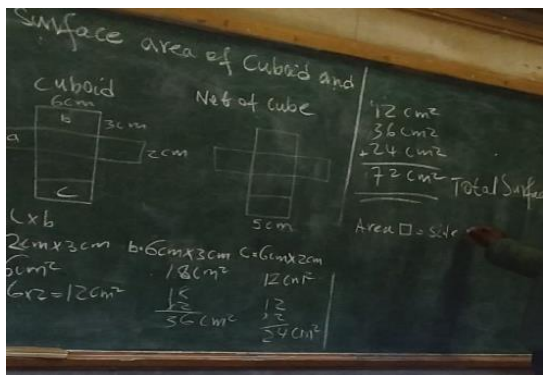 Surface area of Cuboid and
Cuboid
6cm
b
3cm
a
2cm
C
Net of cube
5cm
L x b
2cm x 3cm
6cm²
6x2 = 12cm²
b = 6cm x 3cm
18cm²
18
x2
36cm²
C = 6cm x 2cm
12cm²
12
x2
24cm²
12cm²
36cm²
+24cm²
72cm² Total Surfac
Area □ = Side